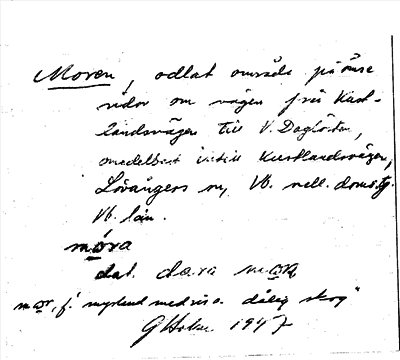 Moren, odlat område på ömse
sidor om vägen från Kust-
landsvägen till V. Dagtorten,
omedelbart intill Kustlandsvägen,
Lövångers sn, Vb. mell. doms.
Vb. län.
mo̲ra
dat. dara mo̲ra
mo̲r, f. myrland med visa dålig skog"
G Holm 1947